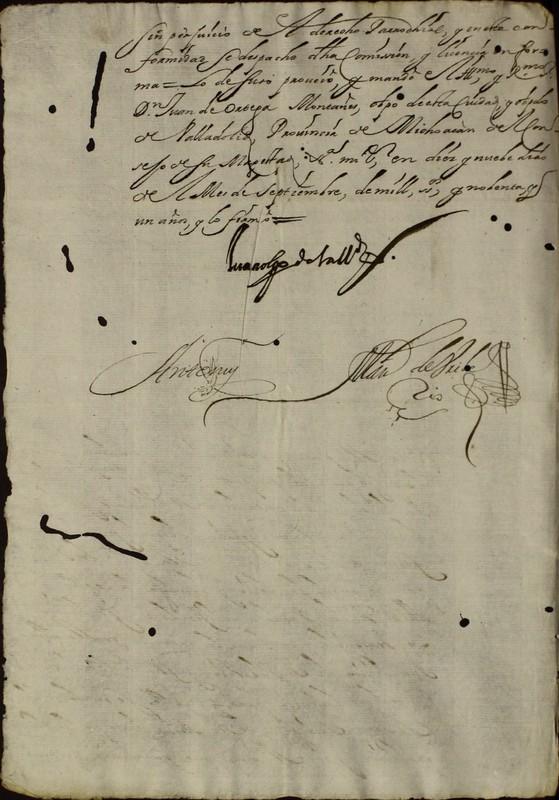 Sin perjuicio de el derecho Parrochial, y en esta con
formidad se despacho dha Comission, y licencia en for
ma = lo assi proveió, y mandó el Illmo, y Rmo
Dn Juan de Ortega Montañes, obpo de esta Ciudad, y obpdo
de Valladolid, Provincia de Michoacan del Con
sejo de su Magestad, en diez y nuebe dias
de el Mes de Septiembre, de mill, ss, y nobenta, y
un años, y lo firmó =
Juan obpo de Valld
Ante my